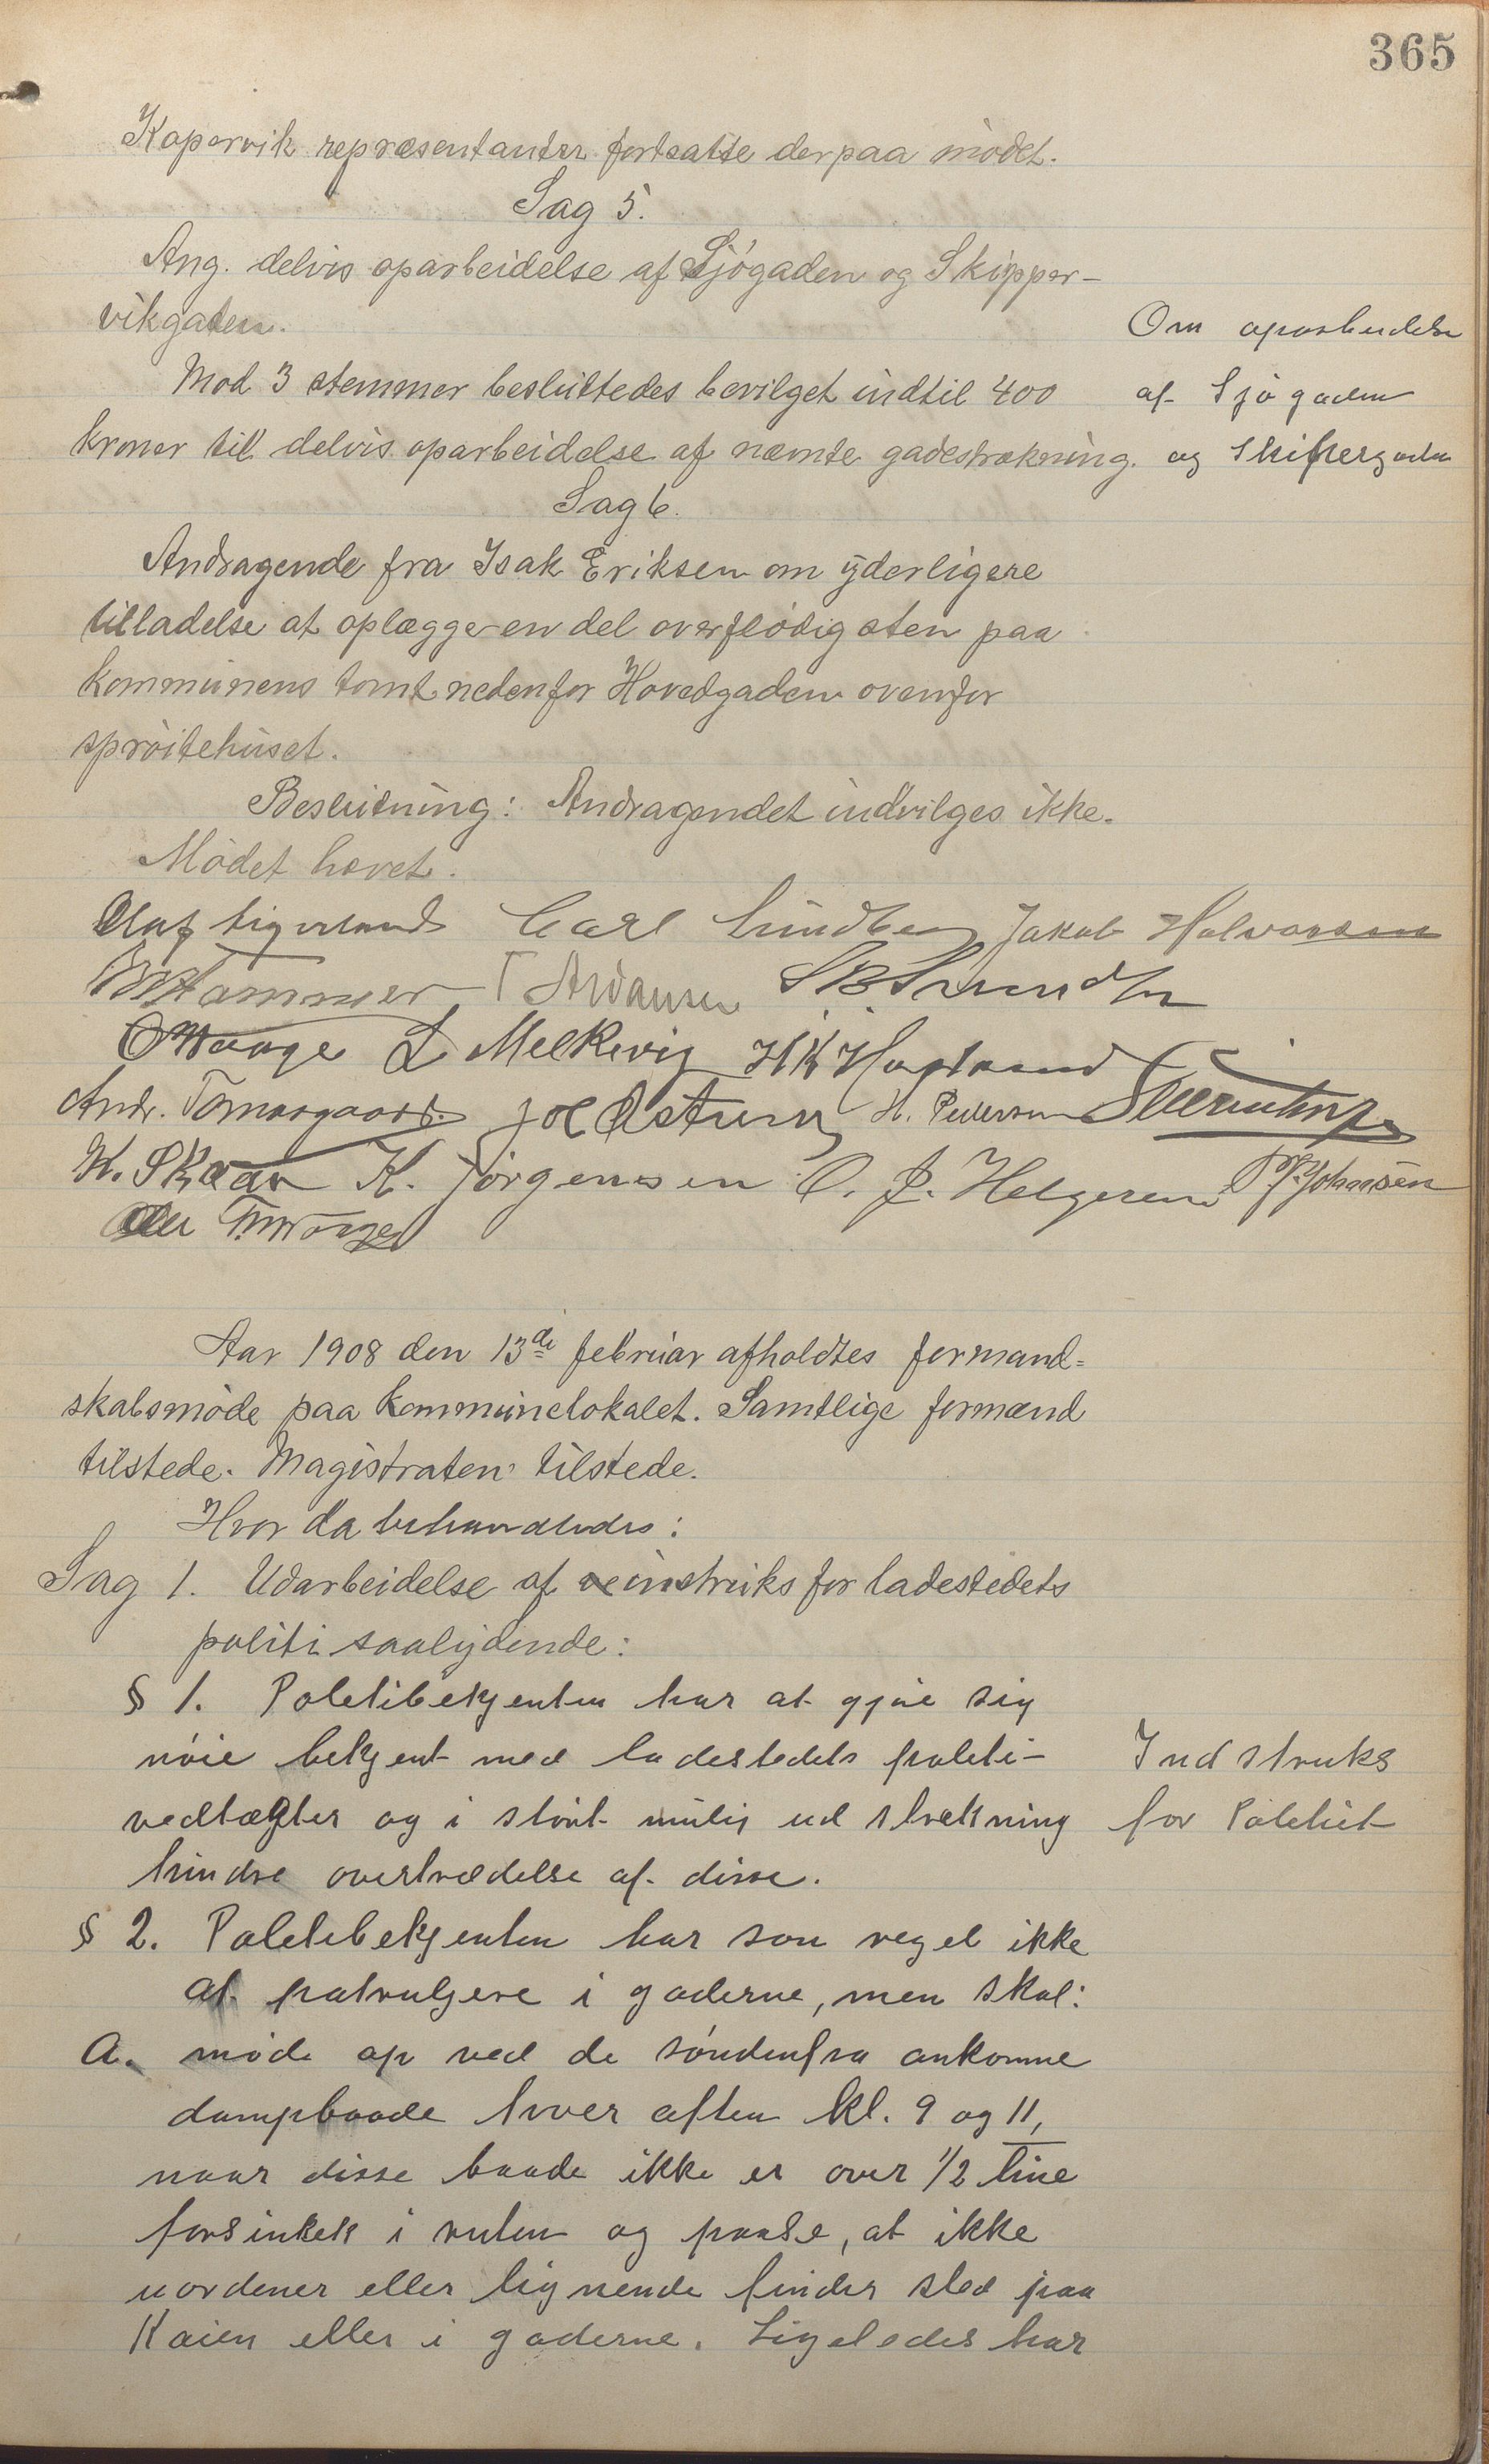 365
Kopervik repræsentanter fortsatte derpaa mödet.
Sag 5.
Ang. delvis oparbeidelse af Sjögaden og Skipper-
vikgaten.
Mod 3 stemmer besluttedes bevilget indtil 400
kroner til delvis oparbeidelse af nævnte gadestrækning.
Om oparbeidelse
af Sjögaden
og Skippergaden
Sag 6.
Andragende fra Isak Eriksen om yderligere
tilladelse at oplægge en del overflödig sten paa
kommunens tomt nedenfor Hovedgaden ovenfor
spröitehuset.
Beslutning: Andragendet indvilges ikke.
Mödet hævet.
Carl Lindberg Jakob Halvorsen
Hammer
O Waage L Melkevig
Andr. Tomasgaard H. Pedersen
K. Skaar K. Jörgensen O. J. Helgesen Johnsen
Aar 1908 den 13de februar afholdtes formand=
skabsmöde paa kommunelokalet. Samtlige formænd
tilstede. Magistraten tilstede.
Hvor da behandledes:
Sag 1. Udarbeidelse af instruks for ladestedets
politi saalydende:
§ 1. Politibetjenten har at gjöre sig
nöie betjent med ladestedets politi-
vedtægter og i störst mulig udstrækning
hindre overtrædelse af disse.
Indstruks
for Politiet
§ 2. Politibetjenten har som regel ikke
at patruljere i gaderne, men skal:
a. möde op ved de söndenfra ankomne
dampbaade hver aften kl. 9 og 11,
naar disse baade ikke er over 1/2 time
forsinket i ruten og paase, at ikke
uordener eller lignende finder sted paa
Kaien eller i gaderne. Ligeledes har